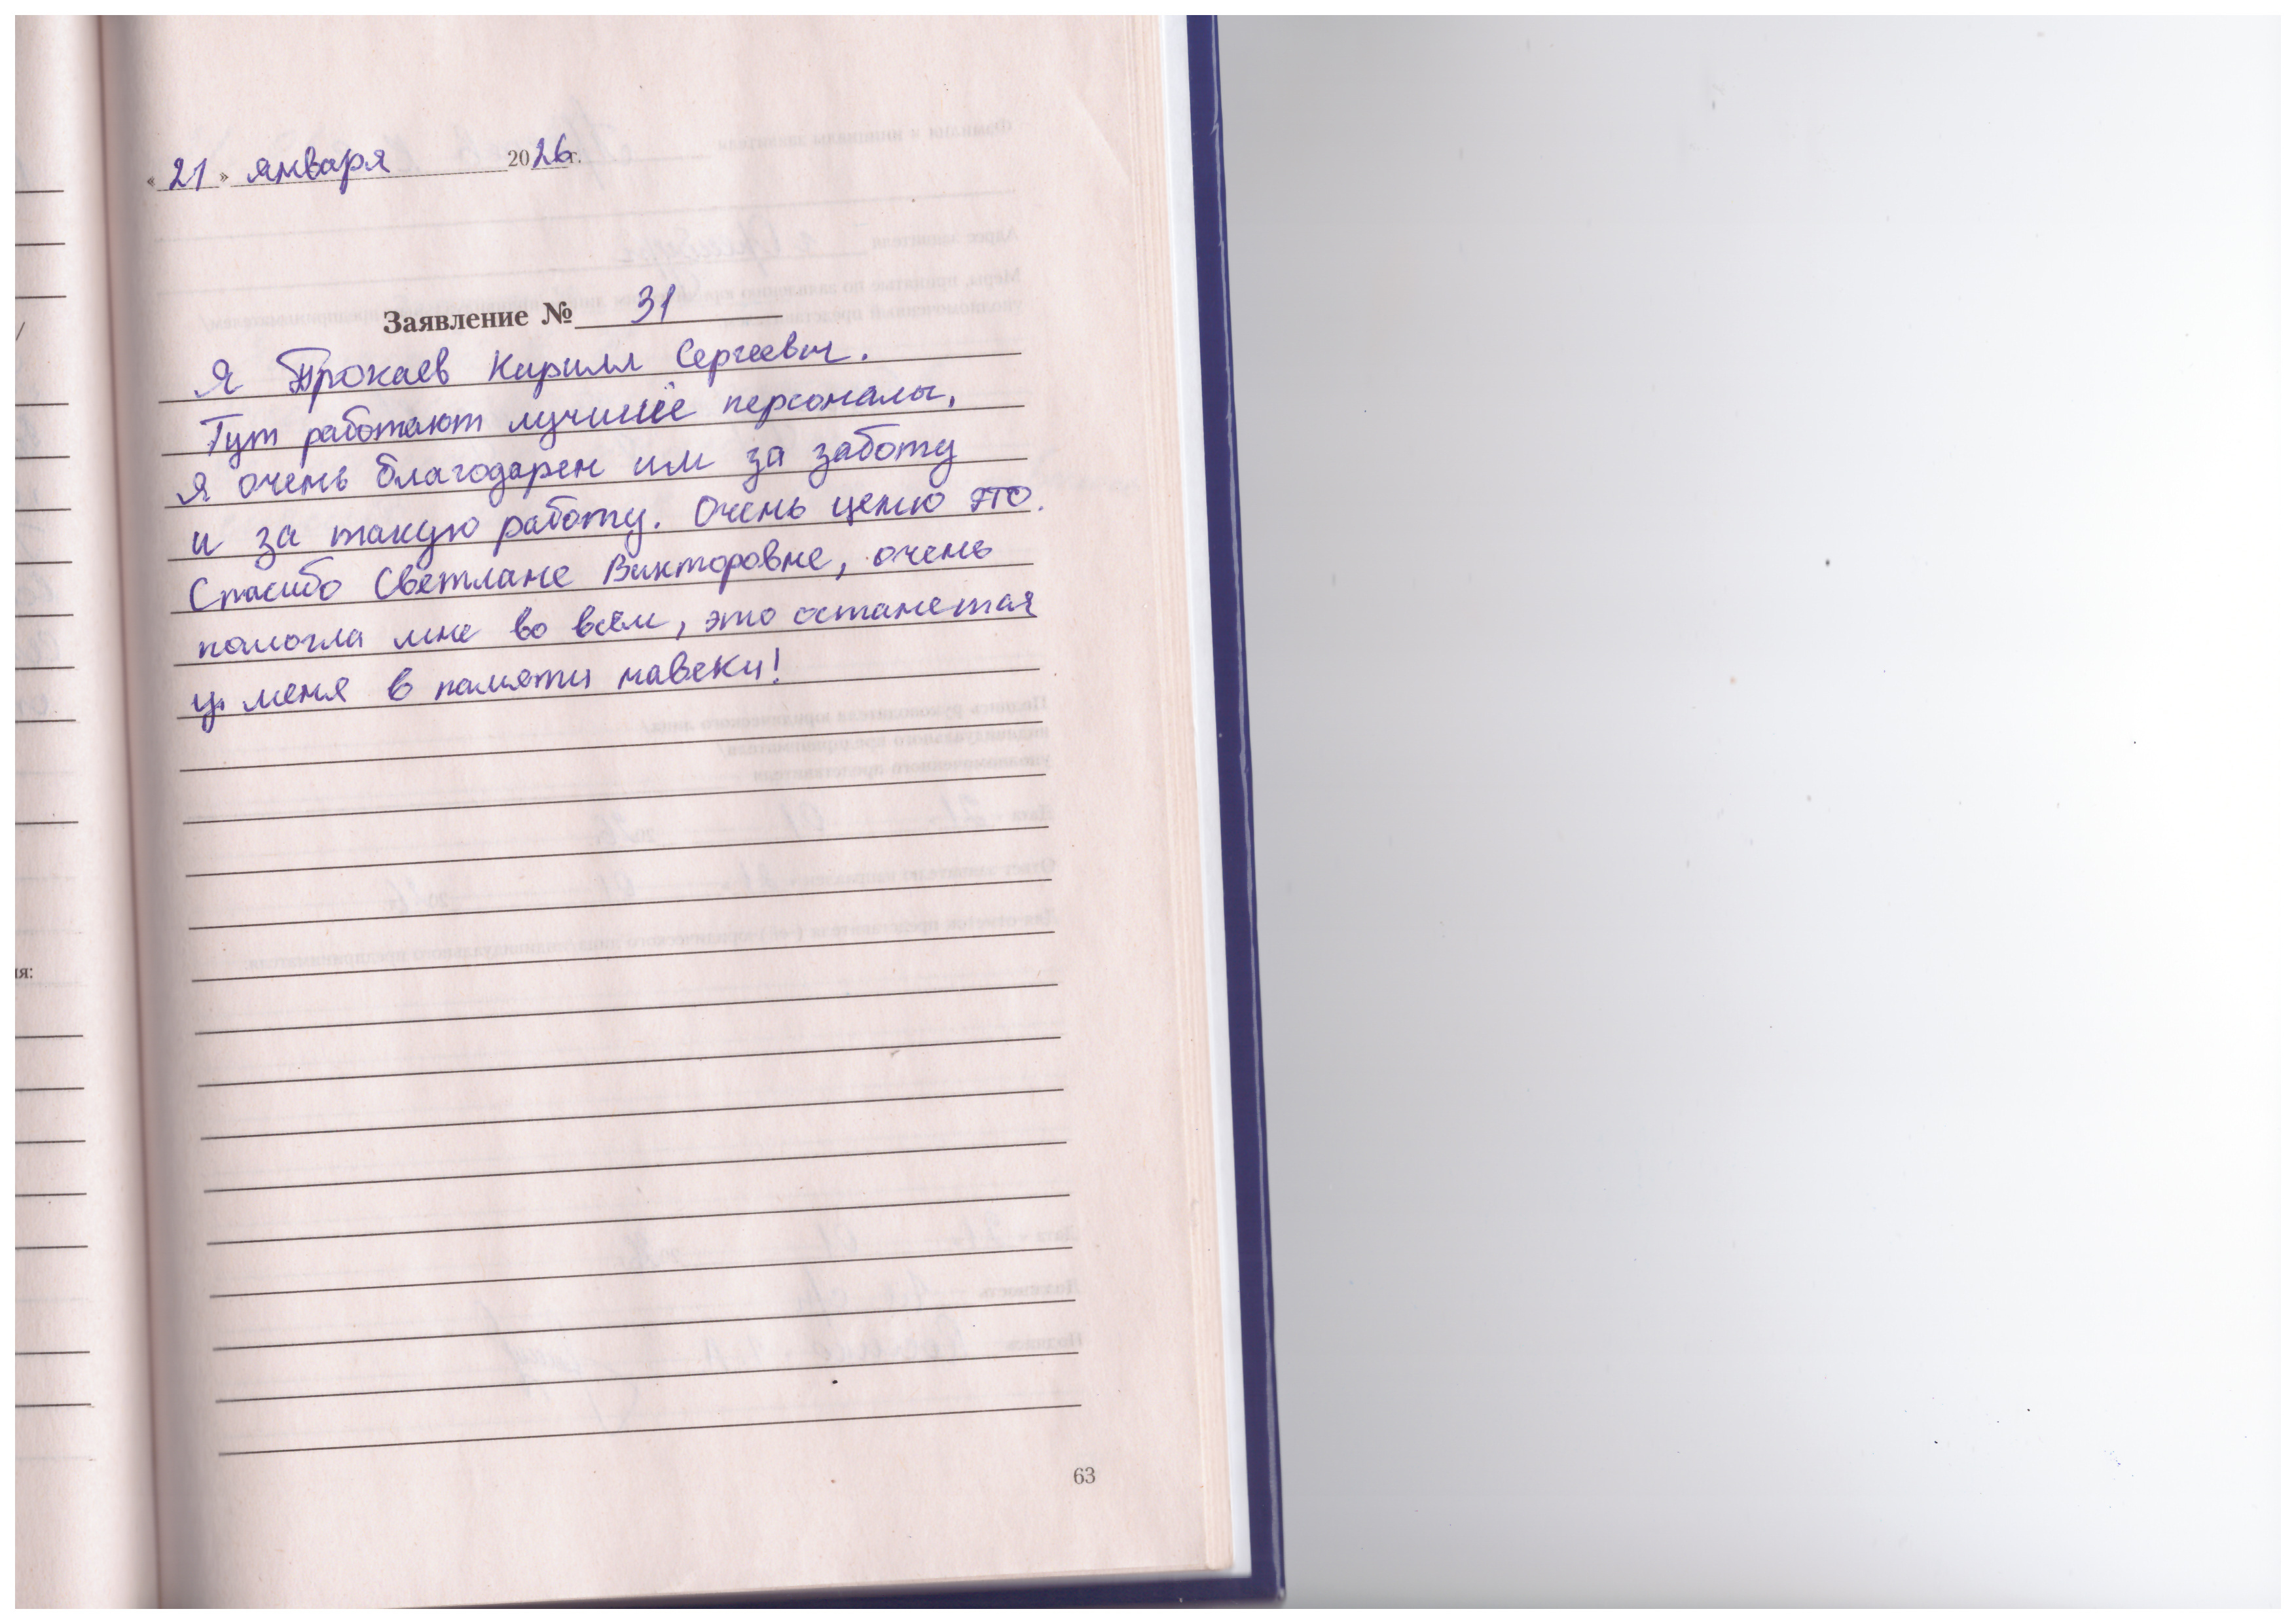 «21» января 2026г.
Заявление № 31
Я Прокаев Кирилл Сергеевич.
Тут работают лучшиё персоналы,
я очень благодарен им за заботу
и за такую работу. Очень ценю это.
Спасибо Светлане Викторовне, очень
помогла мне во всём, это останется
у меня в памяти навеки!
ия:
63